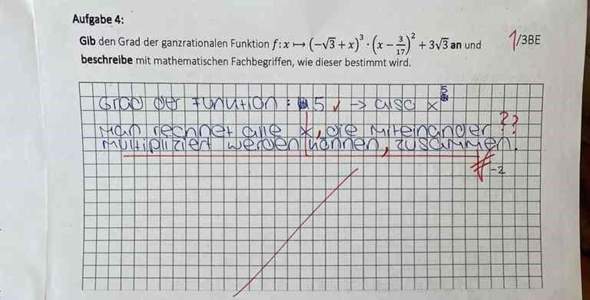 Aufgabe 4:
Gib den Grad der ganzrationalen Funktion f: x ↦ (−√3 + x)³ · (x − 3/17)² + 3√3 an und 1/3BE
beschreibe mit mathematischen Fachbegriffen, wie dieser bestimmt wird.
Grad der Funktion: 5 ✓ → also x⁵
Man rechnet alle x, die miteinander ??
multipliziert werden können, zusammen.
-2